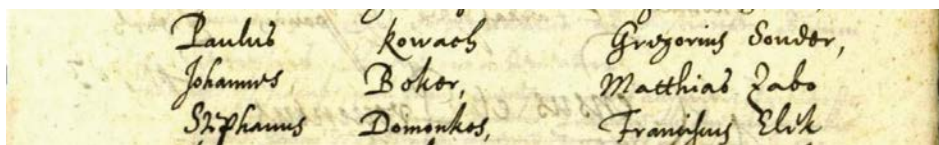 Paulus Kowach Gregorius Sonder,
Johannes Beker, Matthias Zabo
Stephanus Domonkos, Franciscus Elek